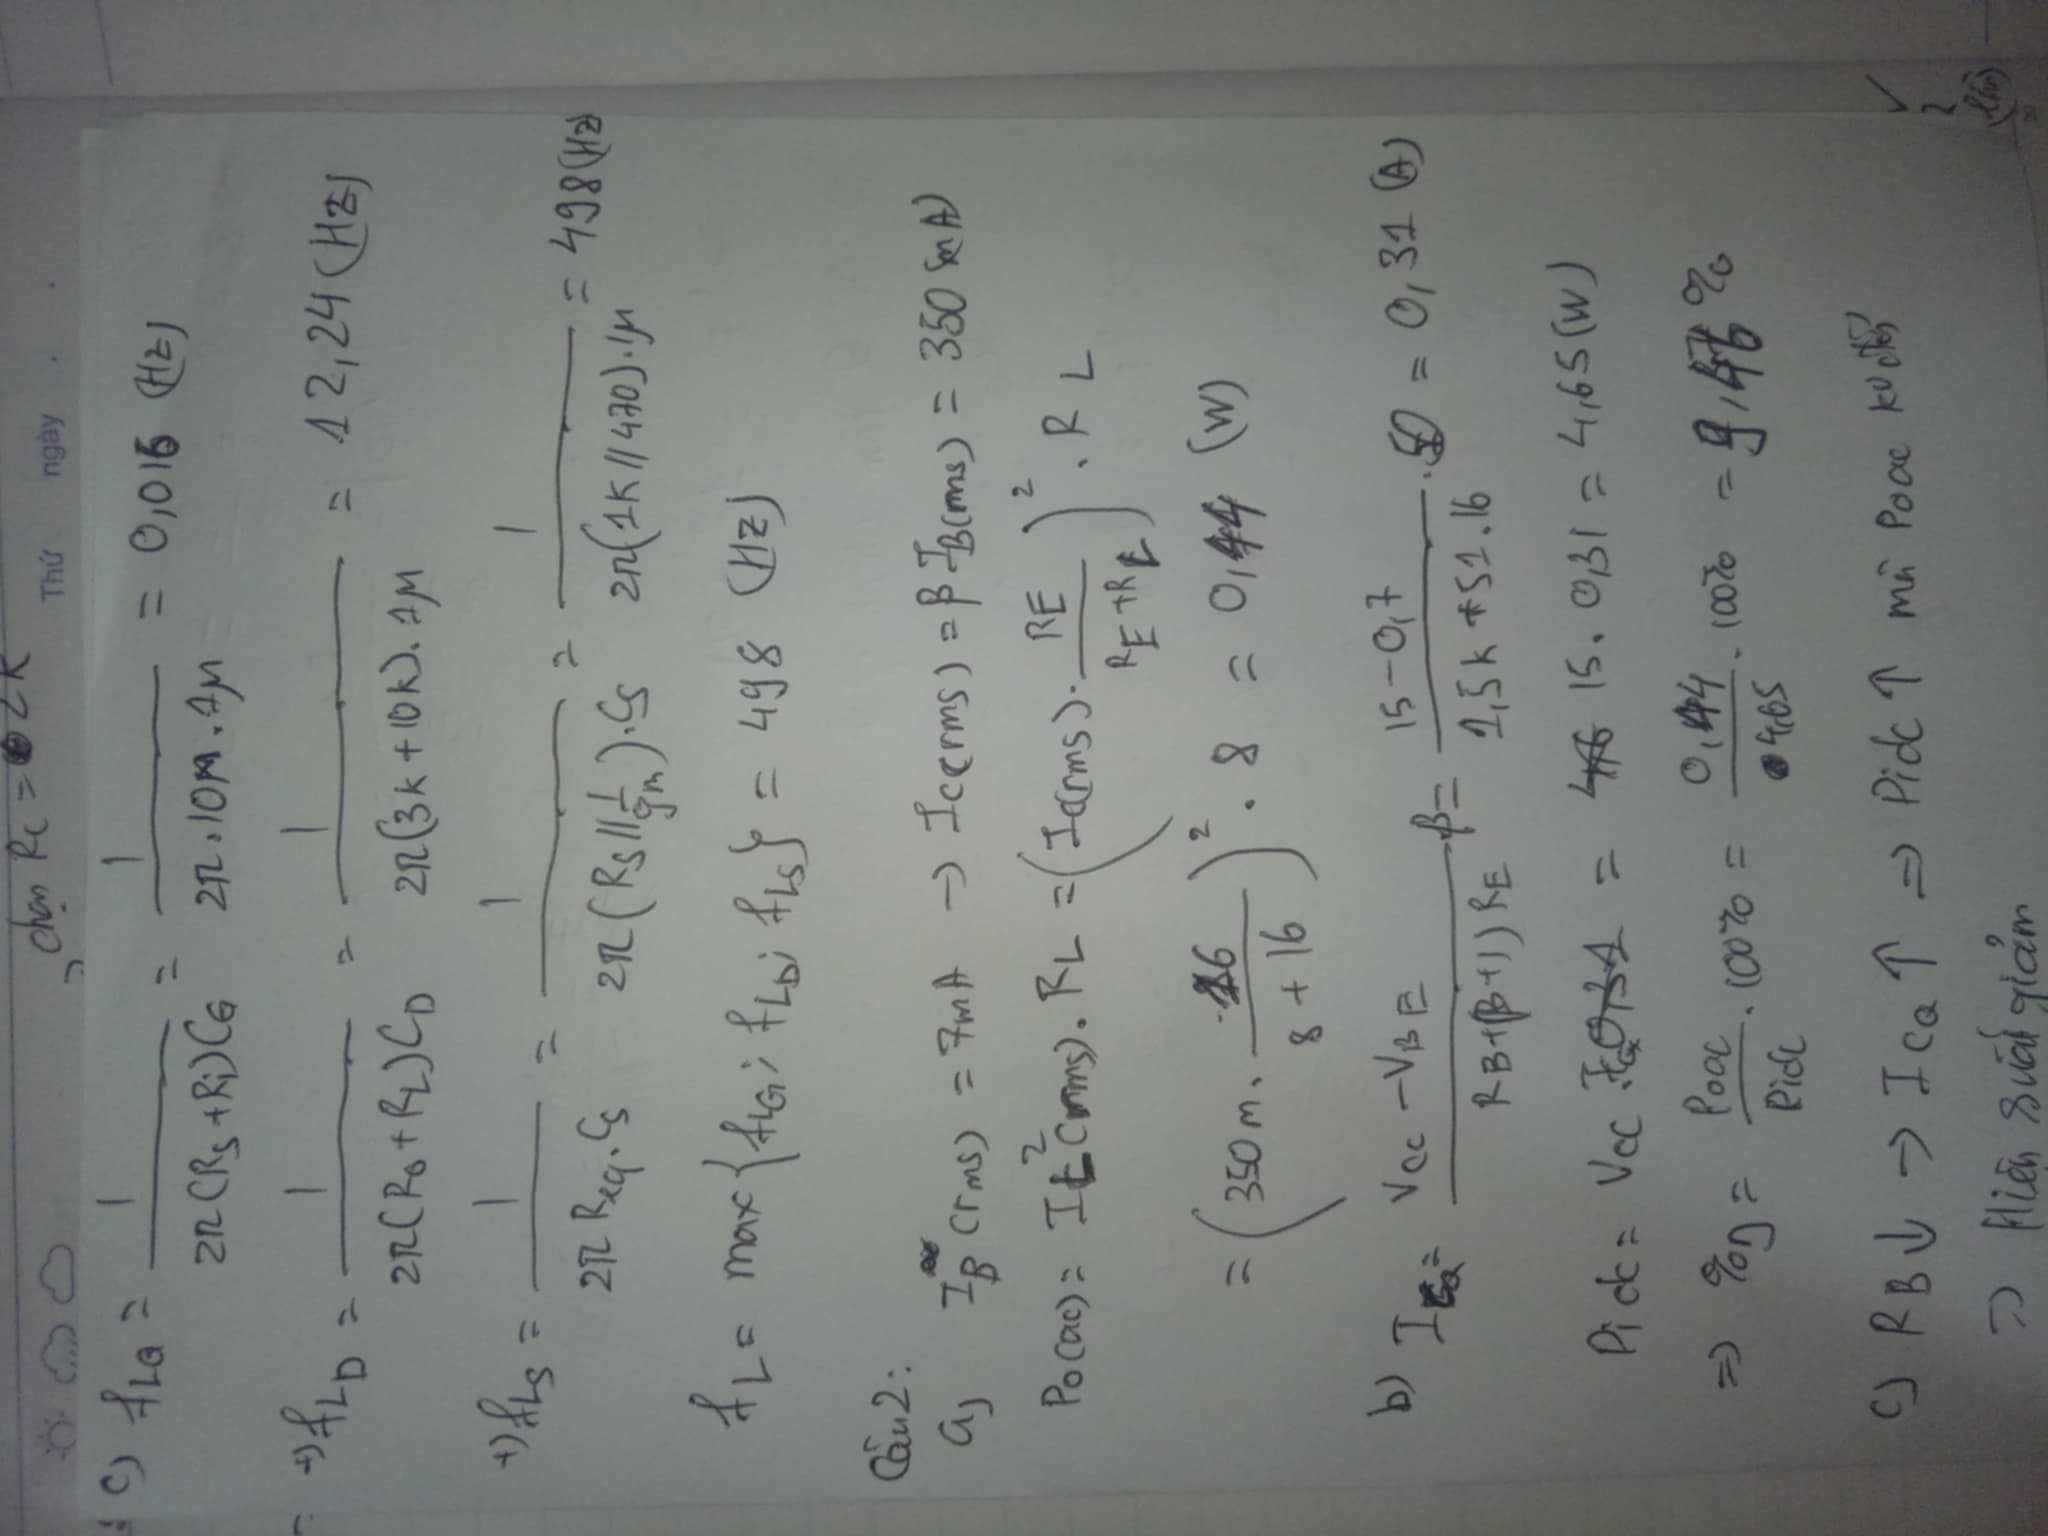 chọn Rc = 2K
Thứ ngày . .
c) fLG = 1 / 2π(Rs+Ri)CG = 1 / 2π.10M.1μ = 0,016 (Hz)
+) fLD = 1 / 2π(Ro+RL)CD = 1 / 2π(3k+10k).1μ = 12,24 (Hz)
+) fLS = 1 / 2π Req.Cs = 1 / 2π(Rs//1/gm).Cs = 1 / 2π(1K//470).1μ = 498 (Hz)
fL = max{fLG; fLD; fLS} = 498 (Hz)
Câu 2:
a) IB(rms) = 7mA → Ic(rms) = β IB(rms) = 350 (mA)
Po(ac) = IL²(rms). RL = (Ic(rms). RE / RE+RL)². RL
= (350m. 16 / 8+16)². 8 = 0,44 (W)
b) ICQ = Vcc - VBE / RB+(β+1)RE . β = 15-0,7 / 1,5k+51.16 . 50 = 0,31 (A)
Pidc = Vcc . = 15. 0,31 = 4,65 (W)
=> %η = Poac / Pidc . 100% = 0,44 / 4,65 . 100% = 9,46 %
c) RB↓ → ICQ ↑ => Pidc ↑ mà Poac ko đổi
=> Hiệu suất giảm
2